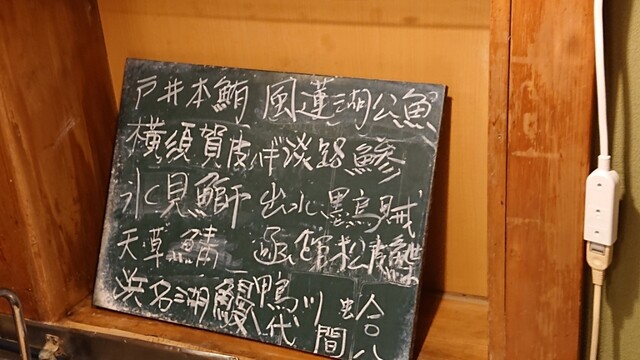 戸井本鮪 風蓮湖公魚
横須賀皮ハギ 淡路鯵
氷見鰤 出水墨烏賊
天草鯖 函館松皮鰈
浜名湖鰻 鴨川
代 間 八